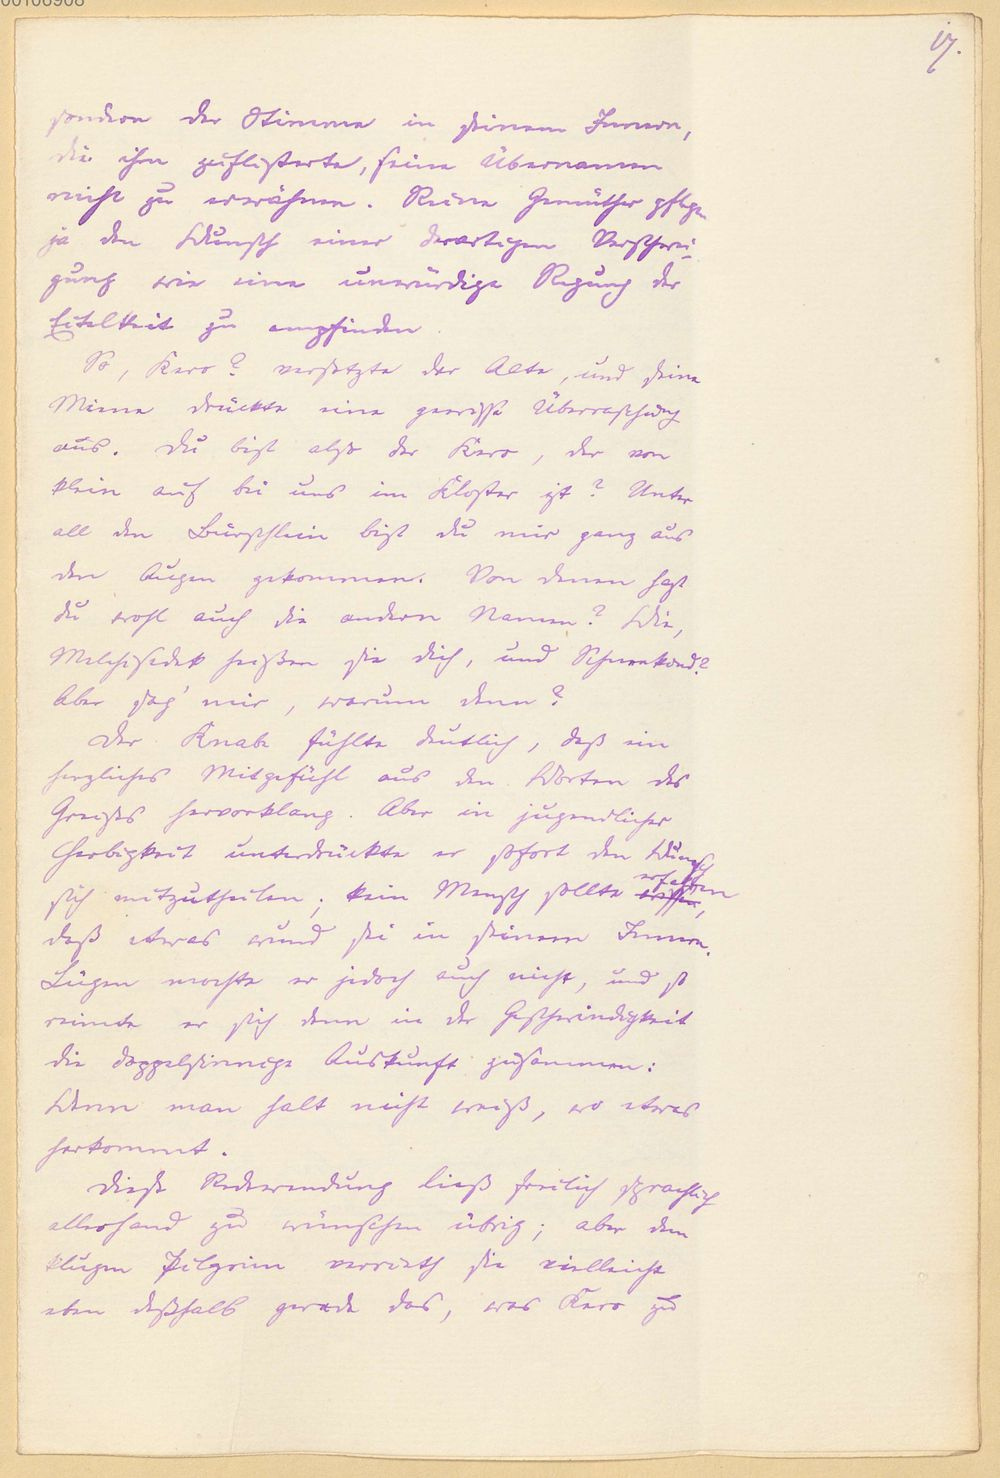 00106908
17.
sondern der Stimme in seinem Innern,
die ihm zuflisterte, seine Übernamen
nicht zu erwähnen. Reine Gemüther pflegen
ja den Wunsch einer derartigen Verschwei-
gung wie eine unwürdige Regung der
Eitelkeit zu empfinden.
So, Kero? versetzte der Alte, und seine
Miene drückte eine gewisse Überraschung
aus. Du bist also der Kero, der von
klein auf bei uns im Kloster ist? Unter
all den Bürschlein bist du mir ganz aus
den Augen gekommen. Von denen hast
du wohl auch die andern Namen? Wie,
Melchisedek heißen sie dich, und
Aber sag' mir, warum denn?
Der Knabe fühlte deutlich, daß ein
herzliches Mitgefühl aus den Worten des
Greises hervorklang. Aber in jugendlicher
Herbigkeit unterdrückte er sofort den Wunsch
sich mitzutheilen; kein Mensch sollte wissen, erfahren
daß etwas wund sei in seinem Innern.
Lügen mochte er jedoch auch nicht, und so
reimte er sich denn in der Geschwindigkeit
die doppelsinnige Auskunft zusammen:
Wenn man halt nicht weiß, wo etwas
herkommt.
Diese Redewendung ließ freilich sprachlich
allerhand zu wünschen übrig; aber dem
klugen Pilgrim verrieth sie vielleicht
eben deßhalb gerade das, was Kero zu